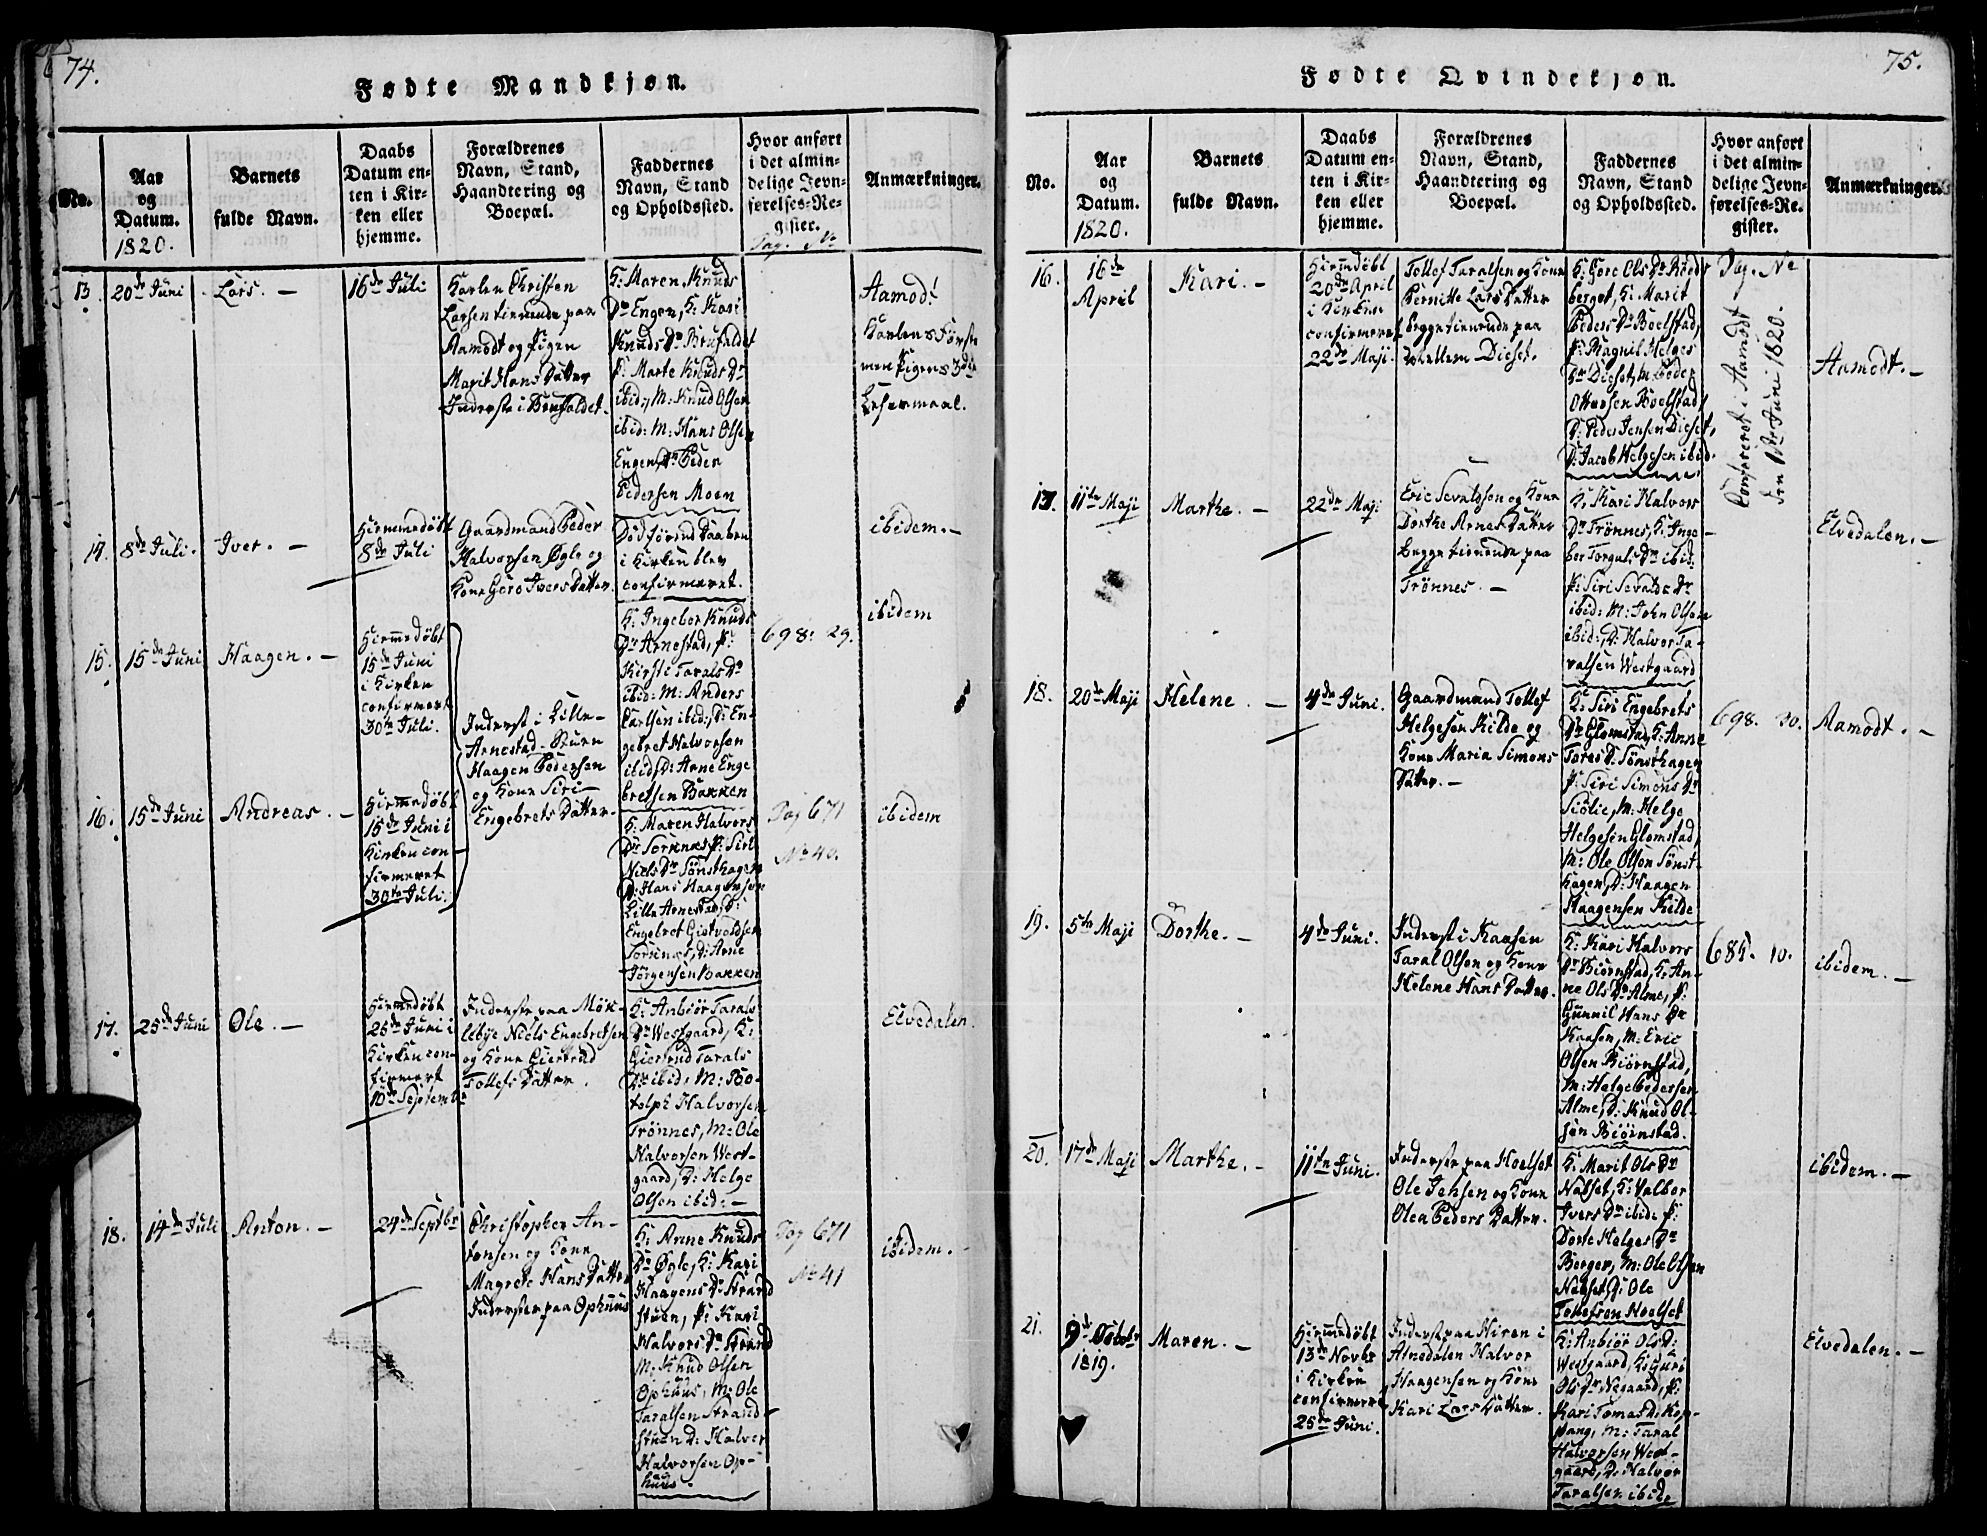 74.
Fødte Mandkjøn.
No.
Aar
og
Datum.
1820.
Barnets
fulde Navn.
Daabs
Datum en-
ten i Kir-
ken eller
hjemme.
Forældrenes
Navn, Stand,
Haandtering og
Boepæl.
Faddernes
Navn, Stand
og Opholdssted.
Hvor anført
i det almin-
delige Jevn-
førelses-Re-
gister.
Pag. No
Anmærkninger.
13.
20de Juni
Lars. —
16de Juli
Karlen Christen
Larsen tienende paa
Aamodt og Pigen
Marit Hans Datter
Inderste i Brufaldet.
K: Maren Knuds
Dr Engen, K: Kari
Knuds Dr Brufaldet
P: Marte Knuds Dr
ibid, M: Knud Olsen
ibid: M: Hans Olsen
Engen, D: Peder
Pedersen Moen
Aamod!
Karlens Første
men Pigens 3die
Leiermaal.
14.
8de Juli.
Iver. —
Hiemmedøbt
8de Juli
Gaardmand Peder
Halvorsen Øgle og
Kone Gero Ivers Datter.
Død førend Daaben
i Kirken blev
confirmeret.
ibidem. —
15.
15de Juni
Haagen. —
Hiemmedøbt
15de Juni
i Kirken
confirmert
30te Juli.
Inderst i Lille-
Arnestad-Stuen
Haagen Pedersen
og Kone Siri
Engebrets Datter.
K: Ingebor Knuds
Dr Arnestad, P:
Kirsti Tarals Dr
ibid: M: Anders
Carlsen ibid:, D: En-
gebret Halvorsen
ibid, D: Arne Enge
bretsen Bakken
698. 29.
ibidem
16.
15de Juni
Andreas. —
Hiemmedøbt
15de Juni i
Kirken con-
firmeret
30te Juli.
K: Maren Halvors
Dr Sorknes, P: Siri
Niels Dr Sønsthagen
D: Hans Haagensen
Lille Arnestad, D:
Engebret Gistvoldsen
Sorknes, D: Arne
Jørgensen Bakken
Pag 671
No 40.
ibidem
17.
25de Juni
Ole. —
Hiemmedøbt
25de Juni i
Kirken con-
firmert
10de Septembr
Inderster paa Møk-
lebye Niels Engebretsen
og Kone Giertrud
Tollefs Datter.
K: Anbiør Tarals
Dr Westgaard, K:
Giertrud Tarals
Dr ibid, M: Bo-
tolph Halvorsen
Trønnes, M: Ole
Halvorsen West-
gaard, D: Helge
Olsen ibid: —
Elvedalen.
18.
14de Juli
Anton. —
24de Septbr
Christopher An-
tonsen og Kone
Magrete Hans Datter
Inderster paa Ophuus
K: Anne Knuds
Dr Øgle, K: Kari
Haagens Dr Strand
stuen, P: Kari
Halvors Dr Strand
M: Knud Olsen
Ophuus, M: Ole
Taralsen Strand-
stuen D: Halvor
Halvorsen Op-
huus.
Pag 671
No 41
ibidem.
75.
Fødte Qvindekjøn.
No.
Aar
og
Datum.
1820.
Barnets
fulde Navn.
Daabs
Datum en-
ten i Kir-
ken eller
hjemme.
Forældrenes
Navn, Stand,
Haandtering og
Boepæl.
Faddernes
Navn, Stand
og Opholdssted.
Hvor anført
i det almin-
delige Jevn-
førelses-Re-
gister.
Anmærkninger.
Pag. No
Confereret i Aamodt
den 12te Juni 1820.
16.
16de
April
Kari. —
Hiemmdøbt
20de April
i Kirken
confirmeret
22de Maji.
Tollef Taralsen og Kone
Pernille Lars Datter
begge tienende paa
Diset.
K: Gore Ols Dr Røeds
berget, K: Marit
Peders Dr Boelstad,
P: Magnil Helges
Dr Diset, M: Peder
Ottersen Boelstad,
D: Peder Jensen Diset,
D: Jacob Helgesen ibid.
Aamodt. —
17.
11te Maji
Marthe. —
22de Maji
Eric Sevaldsen og Kone
Dorthe Arnes Datter
begge tienende paa
Trønnes. —
K: Kari Halvors
Dr Trønnes, K: Inge-
bor Torgals Dr ibid.
P: Siri Sevalds Dr
ibid: M: John Olsen
ibid:, D: Halvor Ta-
ralsen Westgaard
Elvedalen. —
18.
20de Maji
Helene. —
4de Juni.
Gaardmand Tollef
Helgesen Kilde og
Kone Maria Simens
Datter. —
K: Siri Engebrets
Dr Glomstad, K: Anne
Tores D. Sønsthagen
P: Siri Simens Dr
Siølie, M: Helge
Helgesen Glomstad,
M: Ole Olsen Sønst-
hagen, D: Haagen
Haagensen Kilde
698. 30.
Aamodt. —
19.
5te Maji
Dorthe. —
4de Juni.
Inderst i Kaasen
Taral Olsen og Kone
Helene Hans Datter.
K: Kari Halvors
Dr Biørnstad, K: An-
ne Ols Dr Alme, P:
Gunnil Hans Dr
Kaasen, M: Eric
Olsen Biørnstad,
M: Helge Pedersen
Alme, D: Knud Ol-
sen Biørnstad.
685. 10.
ibidem. —
20.
17de Maji
Marthe. —
11te Juni.
Inderste paa Hoelset
Ole Jensen og Kone
Olea Peders Datter.
K: Marit Ols Dr
Næset, K: Valbor
Ivers Dr ibid: P:
Dorte Helges Dr
Berger, M: Ole Olsen
Næset, D: Ole
Tollefsen Hoelset
ibidem. —
21.
9de Octobr
1819.
Maren. —
Hiemmedøbt
13de Novbr
i Kirken
confirmeret
25de Juni.
Inderst paa Hiren i
Atnedalen Halvor
Haagensen og Kone
Kari Lars Datter.
K: Anbiør Ols D:
Westgaard, K: Guri
Ols Dr Negaard, P:
Kari Tomas D: Kop-
pang, M: Taral
Halvorsen West-
gaard, D: Halvor
Taralsen ibid:
Elvedalen. —